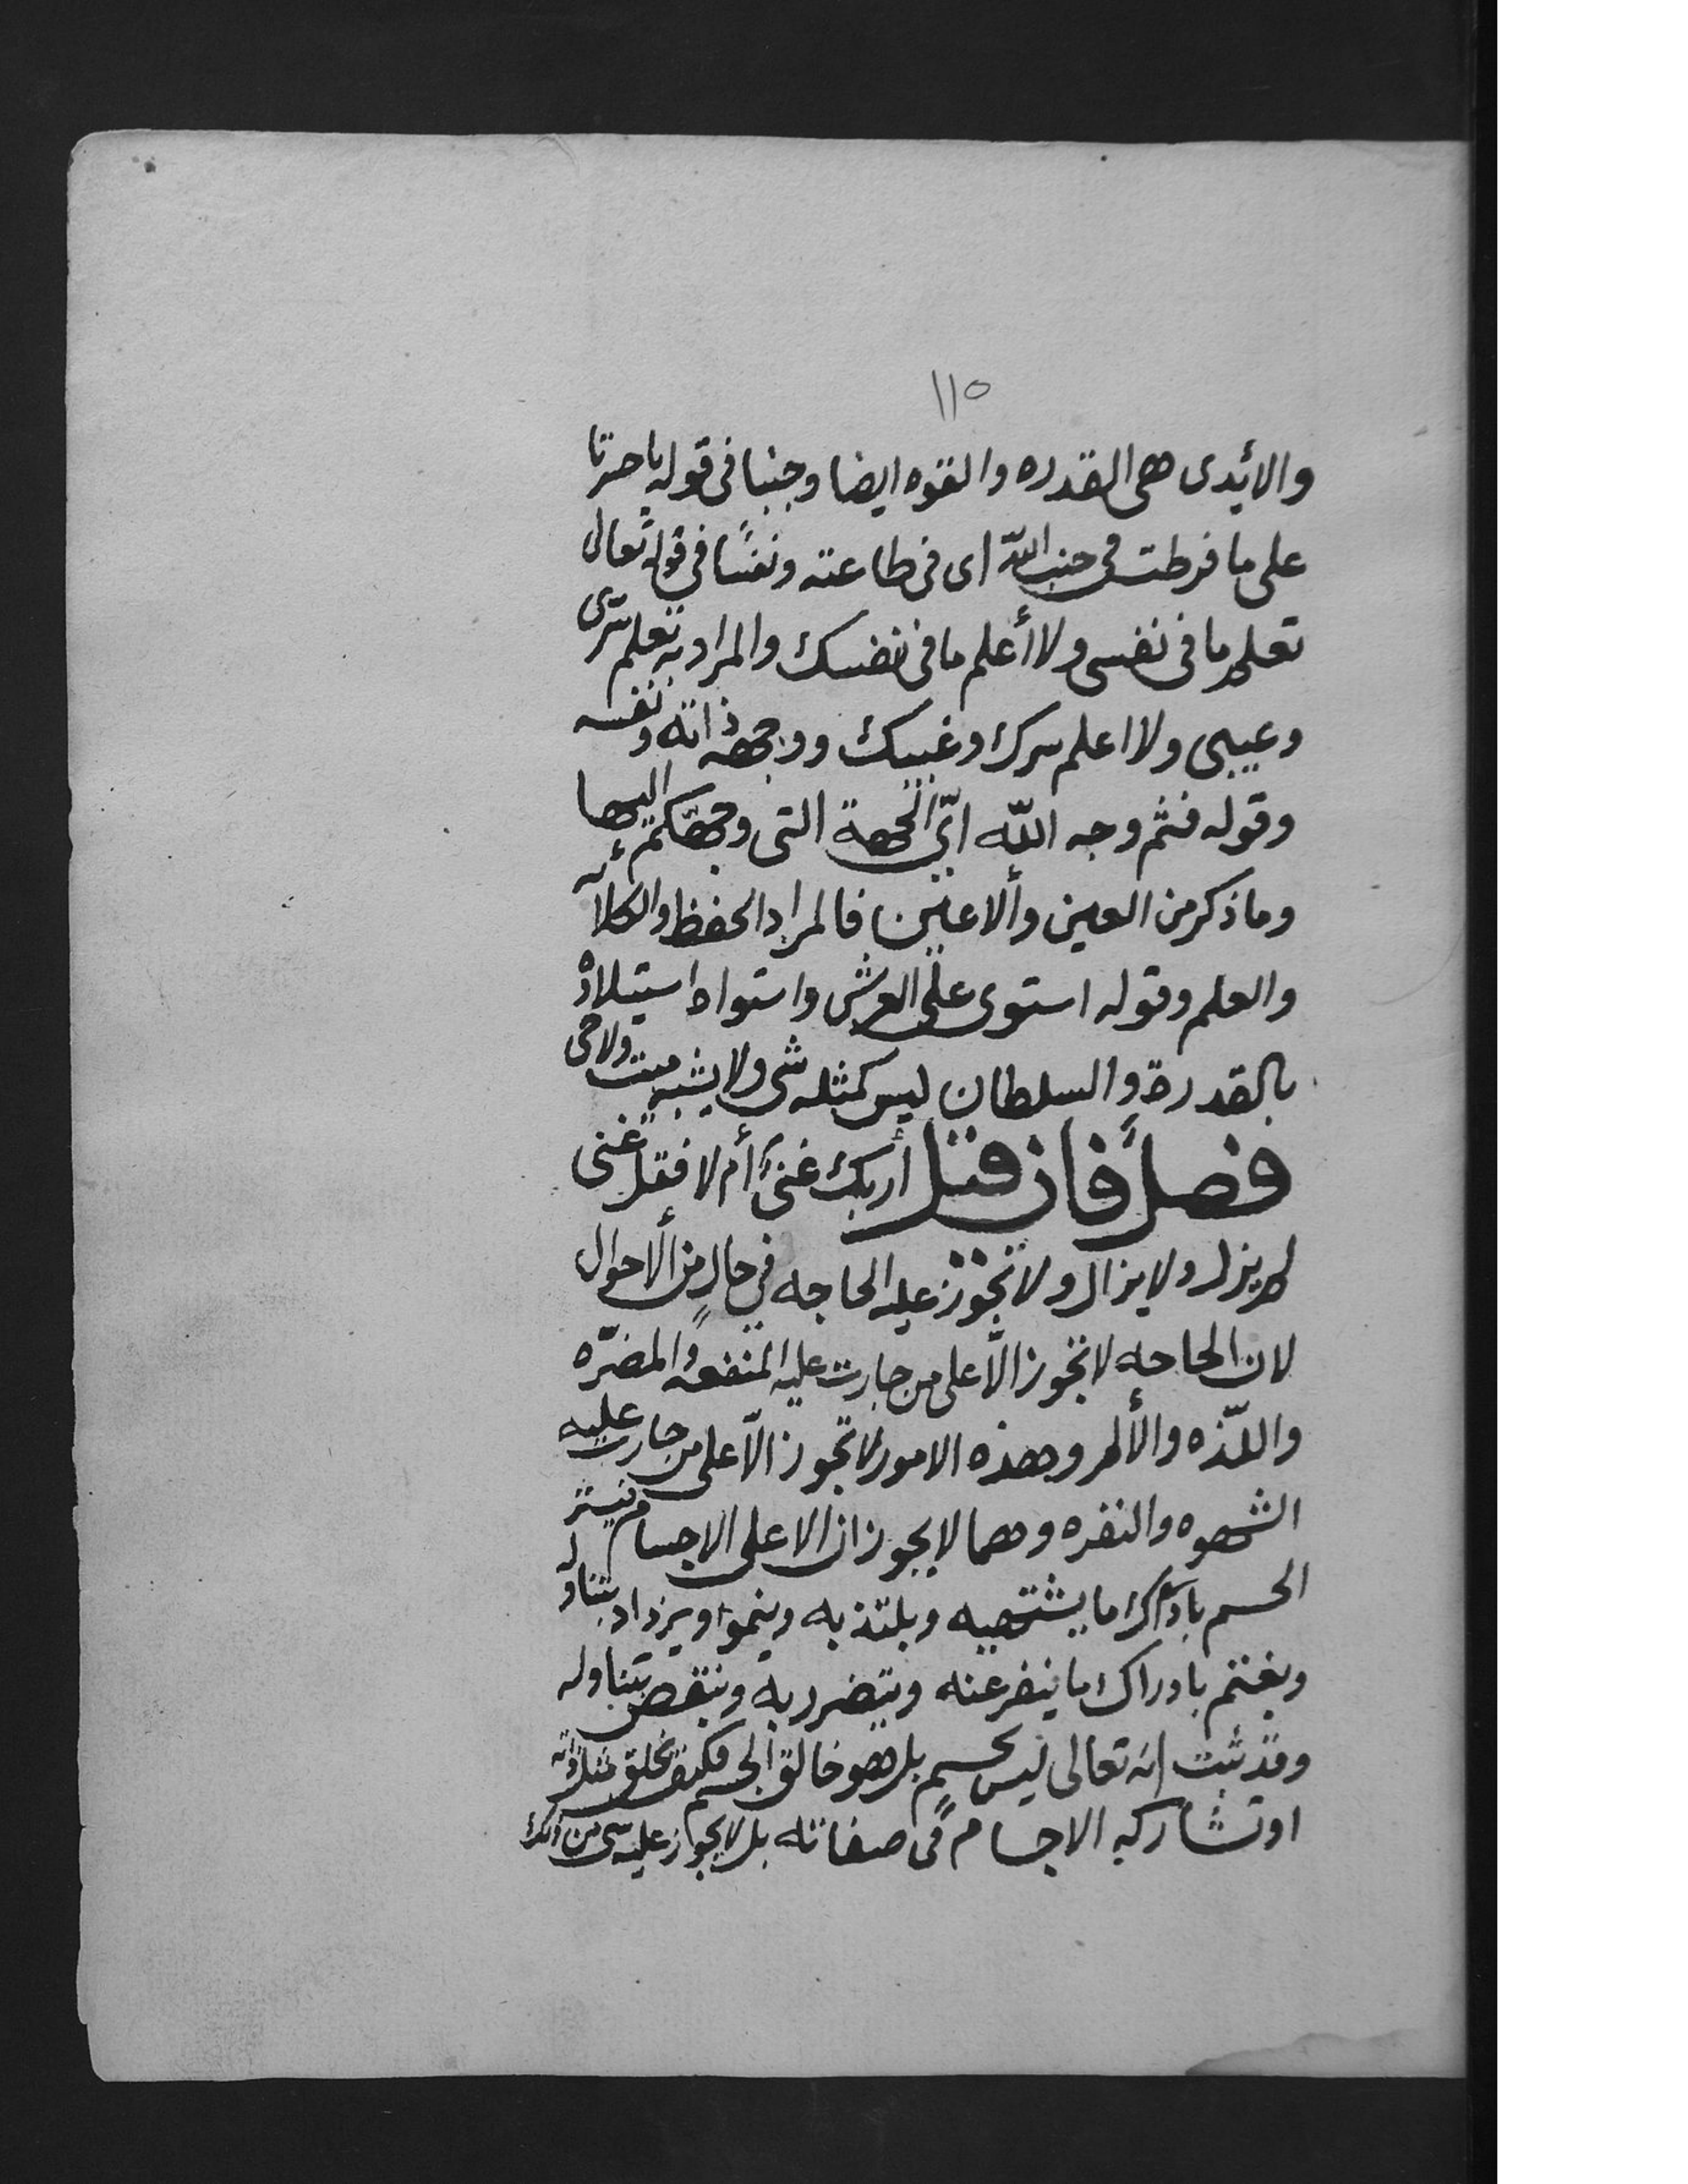 ١١٥
والأيدى هى القدره والقوه ايضا وجنبا فى قوله ياحسرتا
على ما فرطت فى جنب اللّه اى فى طاعته ونفسًا فى قوله تعالى
تعلم ما فى نفسى ولا أعلم ما فى نفسك والمراد به تعلم سّرى
وغيبى ولا اعلم سرك وغيبك ووجهه ذاته ونفسه
وقوله فثم وجه اللّه اىّ الجهة التى وجهّكم اليها
وما ذكر من العين والاعين فالمراد الحفظ والكلأه
والعلم وقوله استوى على العرش واستواه استيلاؤه
بالقدرة والسلطان ليس كمثله شى ولا يشبه ميت ولا حى
فصل فان قيل أربك غنىٌ أم لا فقل غنى
لم يزل ولا يزال ولا تجوز عليه الحاجه فى حالٍ من الأحوال
لان الحاجه لا تجوز الّا على من جازت عليه المنفعه والمضرّه
واللّذه والألم وهذه الامور لا تجوز الّا على من جازت عليه
الشهوه والنفره وهما لا يجوزان الا على الاجسام فيسّر
الجسم بادراك ما يشتهيه ويلتذ به وينموا ويزداد بتناوله
ويغتنم بادراك ما ينفر عنه ويتضرر به وينتقص بتناوله
وقد ثبت انه تعالى ليس بجسمٍ بل هو خالق الجسم فكيف يخلق مثل ذاته
او تشاركه الاجسام فى صفاته بل لا يجوز عليه شى من ذلك